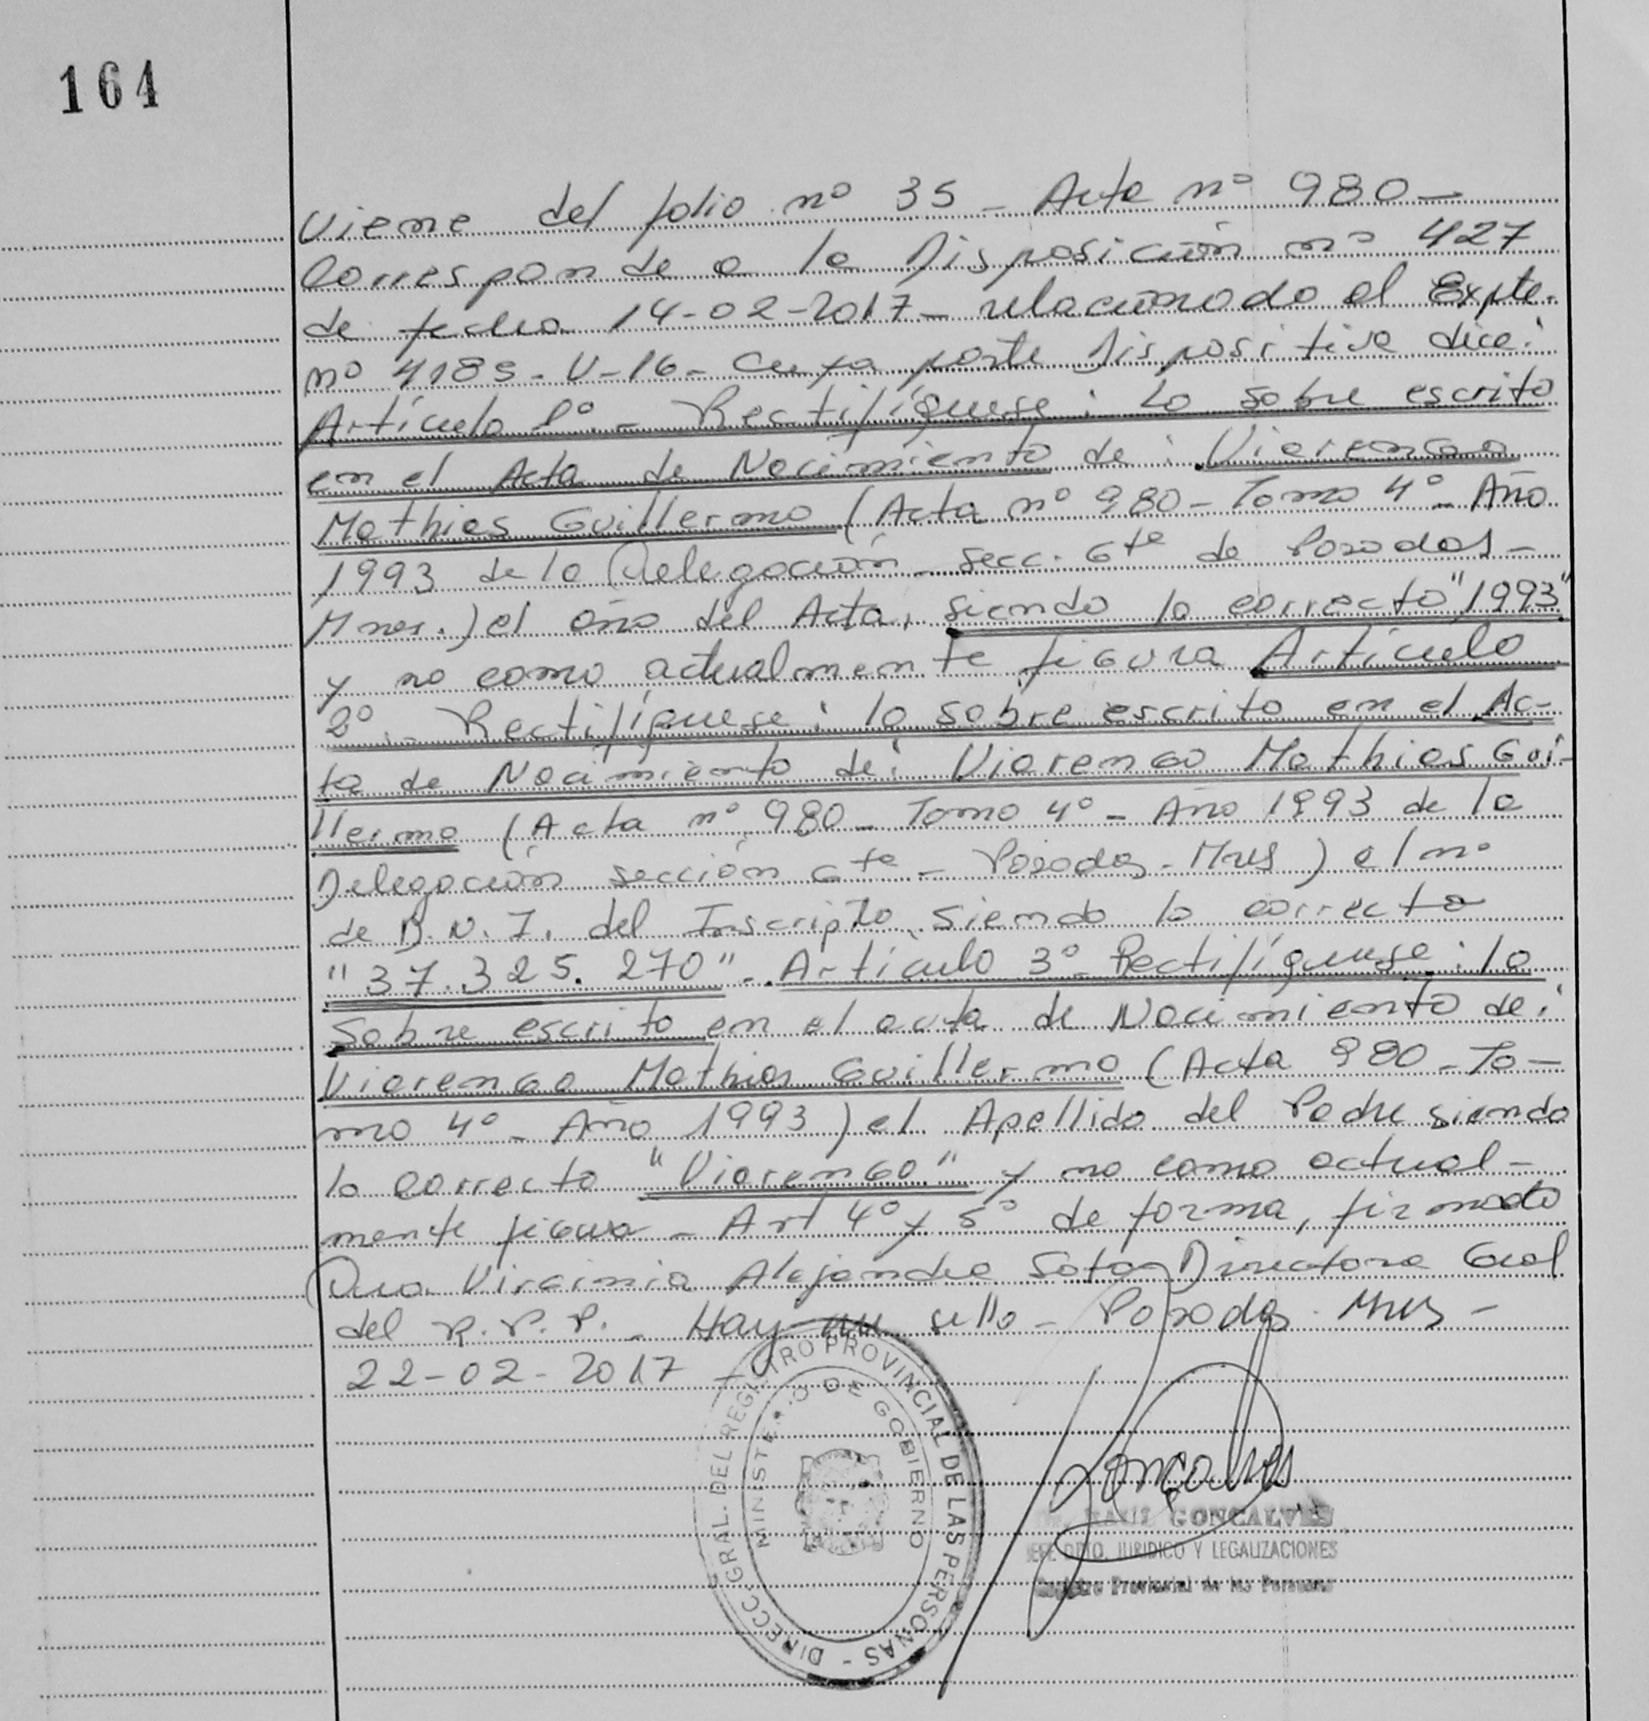 164
Viene del folio nº 35 - Acta nº 980 -
Corresponde a la Disposición nº 427
de fecha 14-02-2017 - relacionado al Expte.
nº 4185-V-16- Cuya parte Dispositiva dice:
Artículo 1º.- Rectifíquese: Lo sobre escrito
en el Acta de Nacimiento de: Viarengo
Mathias Guillermo (Acta nº 980 - Tomo 4º - Año
1993 de la Delegación - secc. 6ta de Posadas -
Mnes.) el año del Acta, siendo lo correcto "1993"
y no como actualmente figura Artículo
2º.- Rectifíquese: lo sobre escrito en el Ac-
ta de Nacimiento de: Viarengo Mathias Gui-
llermo (Acta nº 980 - Tomo 4º - Año 1993 de la
Delegación sección 6ta - Posadas - Mnes) el nº
de D.N.I. del Inscripto, siendo lo correcto
"37.325.270" - Artículo 3º - Rectifíquese: lo
sobre escrito en el acta de Nacimiento de:
Viarengo Mathias Guillermo (Acta 980 - To-
mo 4º - Año 1993) el Apellido del Padre siendo
lo correcto "Viarengo" y no como actual-
mente figura - Art 4º y 5º de forma, firmado
Dra. Virginia Alejandra Soto Directora Gral
del R.P.P. - Hay un sello - Posadas - Mnes -
22-02-2017 -
DIRECC. GRAL. DEL REGISTRO PROVINCIAL DE LAS PERSONAS -
MINISTERIO DE GOBIERNO
GONCALVES
JEFE DPTO. JURIDICO Y LEGALIZACIONES
Registro Provincial de las Personas